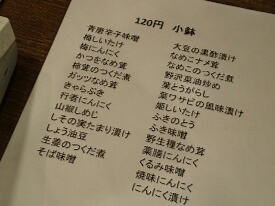 120円 小鉢
青唐辛子味噌
梅しいたけ
梅にんにく
かつをなめ茸
椎茸のつくだ煮
ガッツなめ茸
きゃらぶき
行者にんにく
山椒しめじ
しその実たまり漬け
しょう油豆
生姜のつくだ煮
そば味噌
大豆の黒酢漬け
なめこナメ茸
なめこのつくだ煮
野沢菜油炒め
葉とうがらし
葉ワサビの風味漬け
姫しいたけ
ふきのとう
ふき味噌
野生種なめ茸
薬膳にんにく
くるみ味噌
焼味にんにく
にんにく漬け